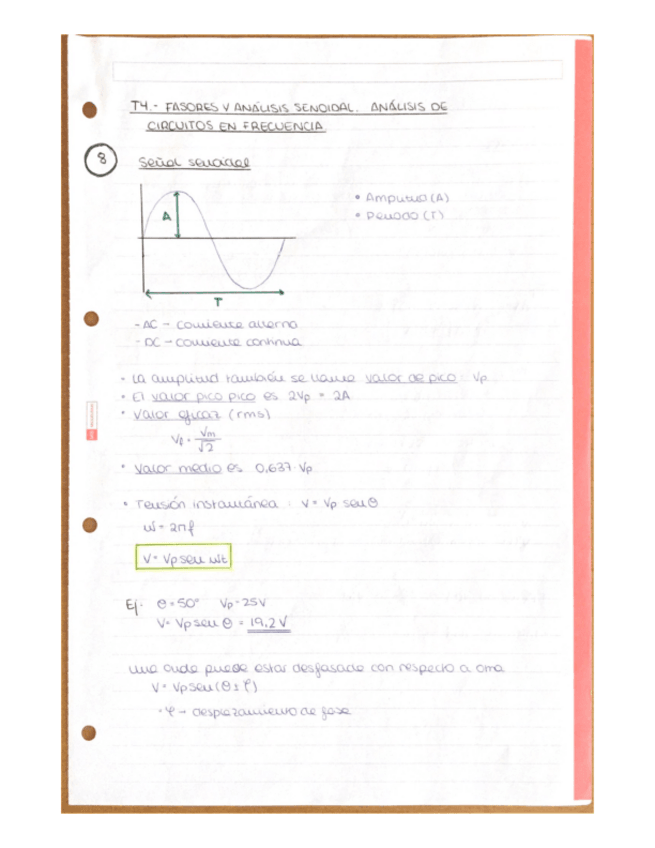 T4.- FASORES Y ANÁLISIS SENOIDAL. ANÁLISIS DE
CIRCUITOS EN FRECUENCIA
8
Señal senoidal
A
T
• Amplitud (A)
• Periodo (T)
- AC → corriente alterna
- DC → corriente continua
• La amplitud también se llama valor de pico Vp
• El valor pico pico es 2Vp = 2A
• Valor eficaz (rms)
Vf = Vm/√2
• Valor medio es 0,637·Vp
• Tensión instantánea : V = Vp senθ
ω = 2πf
V = Vp sen ωt
Ej: θ = 50° Vp = 25V
V = Vp sen θ = 19,2 V
una onda puede estar desfasada con respecto a otra
V = Vp sen (θ ± φ)
· φ → desplazamiento de fase